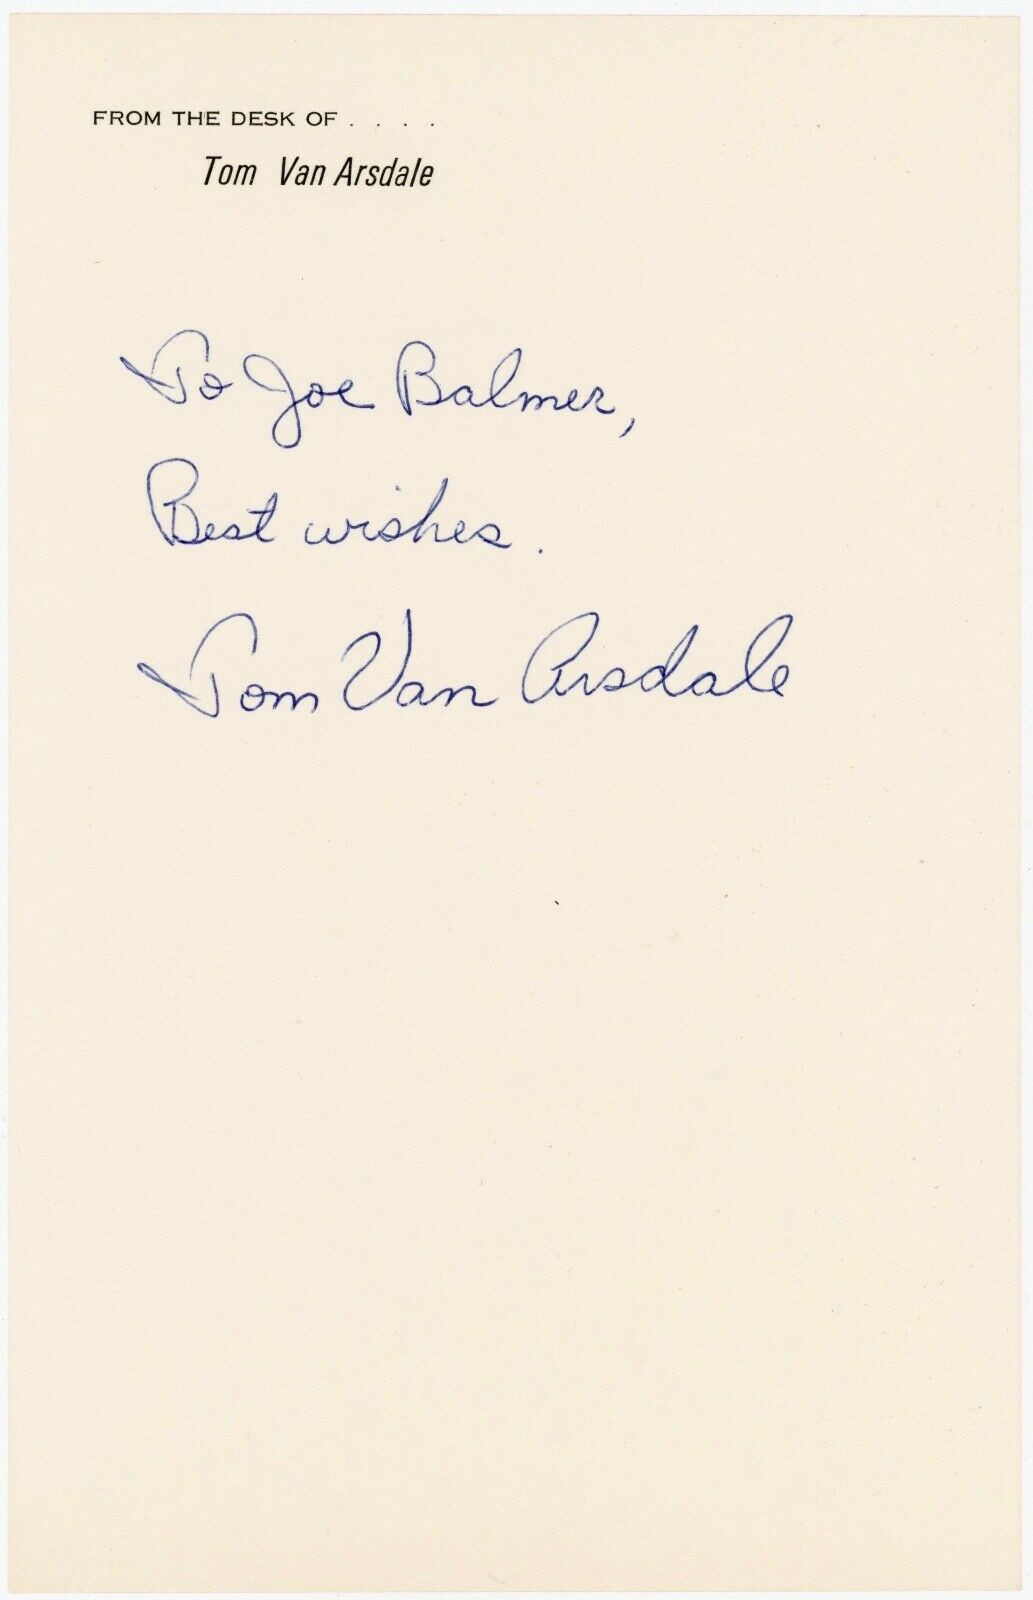 FROM THE DESK OF . . . .
Tom Van Arsdale
To Joe Balmer,
Best wishes.
Tom Van Arsdale